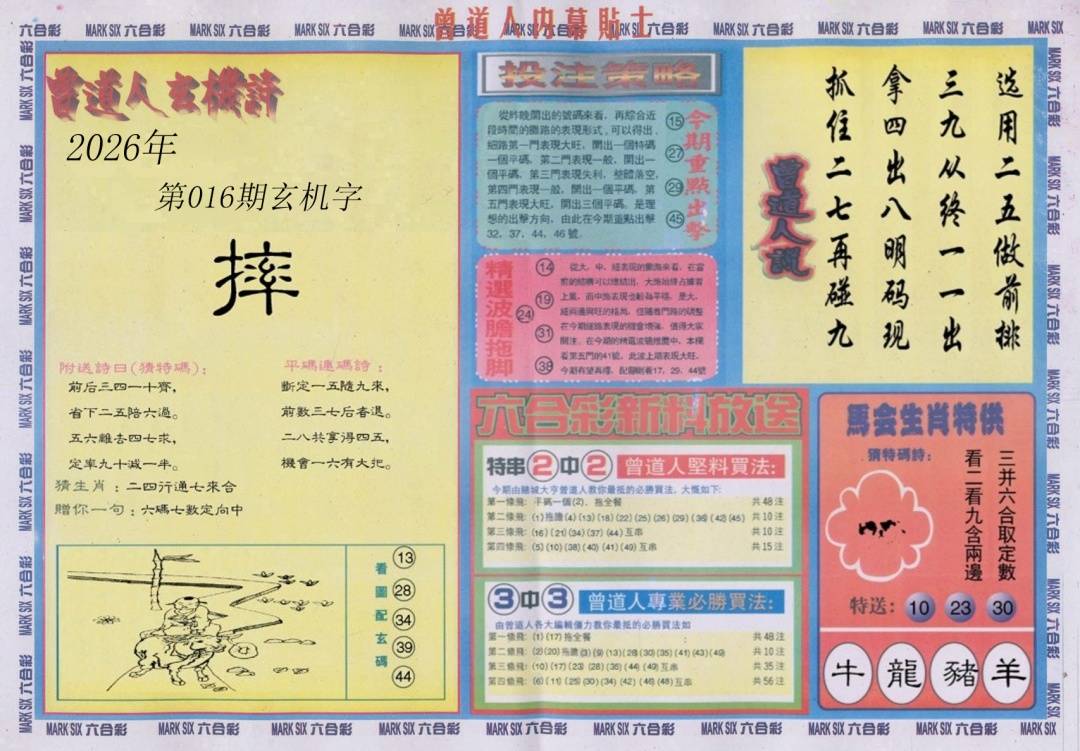 曾道人内幕貼士
六合彩 MARK SIX 六合彩 MARK SIX 六合彩 MARK SIX 六合彩 MARK SIX 六合彩 MARK SIX 六合彩 MARK SIX 六合彩 MARK SIX 六合彩 MARK SIX 六合彩 MARK SIX
曾道人玄機詩
2026年
第016期玄机字
摔
附送詩曰(猜特碼):
前后三四一十齊,
省下二五陪六過。
五六離去四七求,
定率九十减一半。
平碼連碼詩:
斷定一五隨九來,
前數三七后春退。
二八共享得四五,
機會一六有大把。
猜生肖:二四行通七來合
贈你一句:六碼七數定向中
看圖配玄碼
13
28
34
39
44
投注策略
從昨晚開出的號碼來看,再綜合近
段時間的攤路的表現形式,可以得出,
細路第一門表現大旺,開出一個特碼
一個平碼。第二門表現一般,開出一
個平碼。第三門表現失利,整體落空,
第四門表現一般,開出一個平碼。第
五門表現大旺,開出三個平碼。是理
想的出擊方向,由此在今期重點出擊
32、37、44、46號.
15
27
29
45
今期重點出擊
精選波膽拖脚
14
19
24
31
38
看第五門的41號,此波上期表現大旺,
今期有望再爆,配膽則看17、29、44號
六合彩新料放送
特串2中2 曾道人堅料買法:
今期由賭城大亨曾道人教你最抵的必勝買法,大慨如下:
第一條飛: 平碼一個(2),拖全餐 共48注
第二條飛: (1)拖膽(4)(13)(18)(22)(25)(26)(29)(36)(42)(45) 共10注
第三條飛: (16)(21)(34)(37)(44)互串 共10注
第四條飛: (5)(10)(38)(40)(41)(49)互串 共15注
3中3 曾道人專業必勝買法:
由曾道人各大編輯僵力教你最抵的必勝買法如
第一條飛: (1)(17)拖全餐 共48注
第二條飛: (2)(20)拖膽(3)(9)(13)(28)(30)(35)(41)(43)(49) 共10注
第三條飛: (10)(17)(23)(28)(36)(44)(49)互串 共35注
第四條飛: (6)(11)(25)(30)(34)(42)(46)(48)互串 共56注
曾道人說
选用二五做前排
三九从终一一出
拿四出八明码现
抓住二七再碰九
馬会生肖特供
猜特碼詩:
三并六合取定數
看二看九含兩邊
特送: 10 23 30
牛 龍 豬 羊
MARK SIX 六合彩 MARK SIX 六合彩 MARK SIX 六合彩 MARK SIX 六合彩 MARK SIX 六合彩 MARK SIX 六合彩 MARK SIX 六合彩 MARK SIX 六合彩 MARK SIX